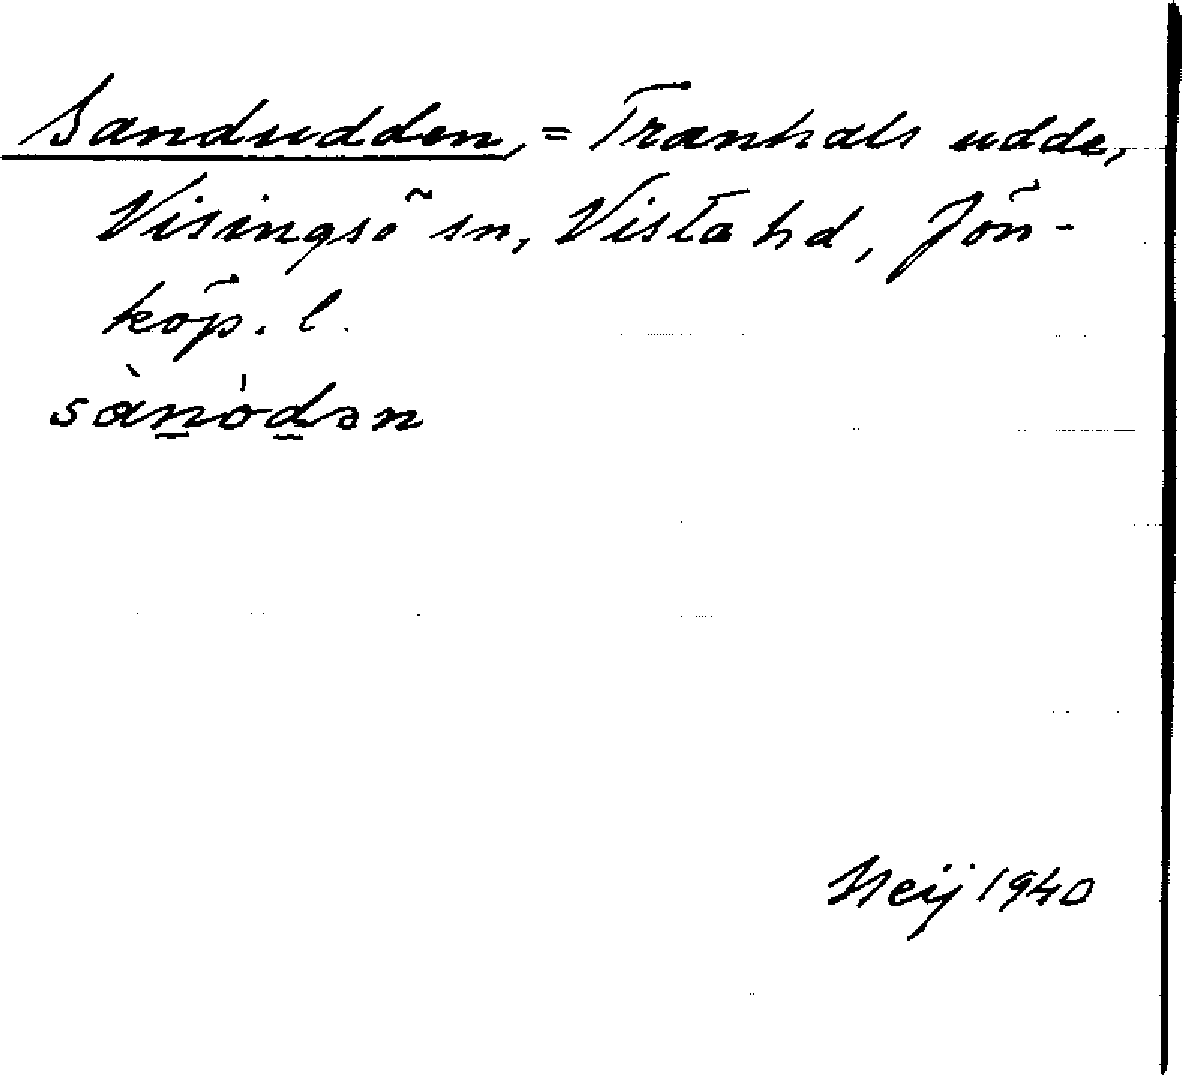 Sandudden, = Tranhals udde,
Visingsö sn, Vista hd, Jön-
köp. l.
sàn̲ȯd̲ən
Heij 1940